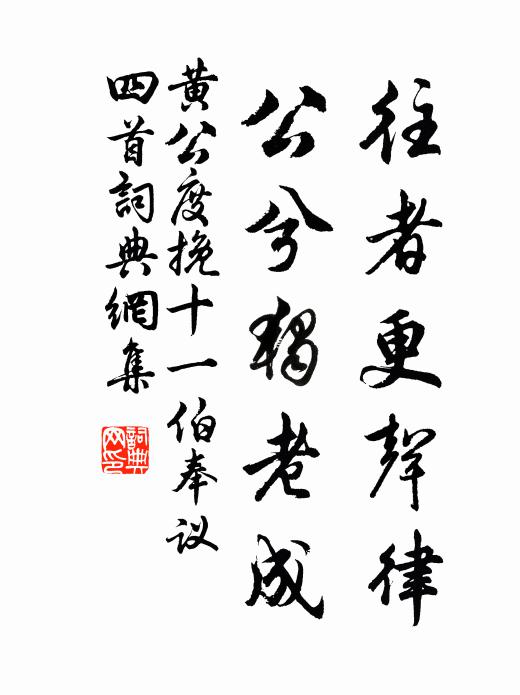 往者更聲律
公兮獨老成
黄公度挽十一伯奉议
四首詞典網集
詞典
网印